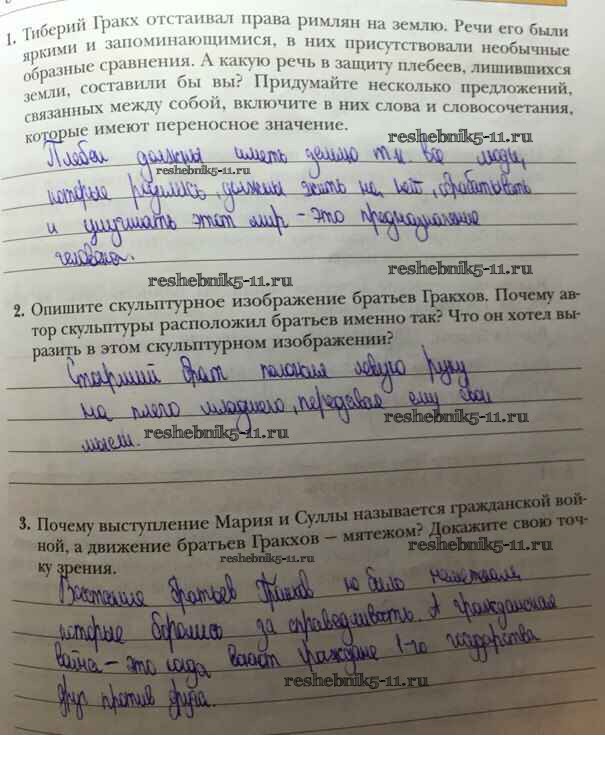 1. Тиберий Гракх отстаивал права римлян на землю. Речи его были
яркими и запоминающимися, в них присутствовали необычные
образные сравнения. А какую речь в защиту плебеев, лишившихся
земли, составили бы вы? Придумайте несколько предложений,
связанных между собой, включите в них слова и словосочетания,
которые имеют переносное значение.
reshebnik5-11.ru
Плебеи должны иметь землю т.к. все люди,
reshebnik5-11.ru
которые родились, должны жить на ней, обрабатывать
и улучшать этот мир - это предназначение
человека.
reshebnik5-11.ru
2. Опишите скульптурное изображение братьев Гракхов. Почему ав-
тор скульптуры расположил братьев именно так? Что он хотел вы-
разить в этом скульптурном изображении?
reshebnik5-11.ru
Старший брат положил левую руку
на плечо младшего, передавая ему свои
reshebnik5-11.ru
мысли.
3. Почему выступление Мария и Суллы называется гражданской вой-
ной, а движение братьев Гракхов – мятежом? Докажите свою точ-
ку зрения.
reshebnik5-11.ru
Восстание братьев Гракхов но было
которые боролись за справедливость. А гражданская
война - это когда воюют граждане 1-го государства
reshebnik5-11.ru
друг против друга.